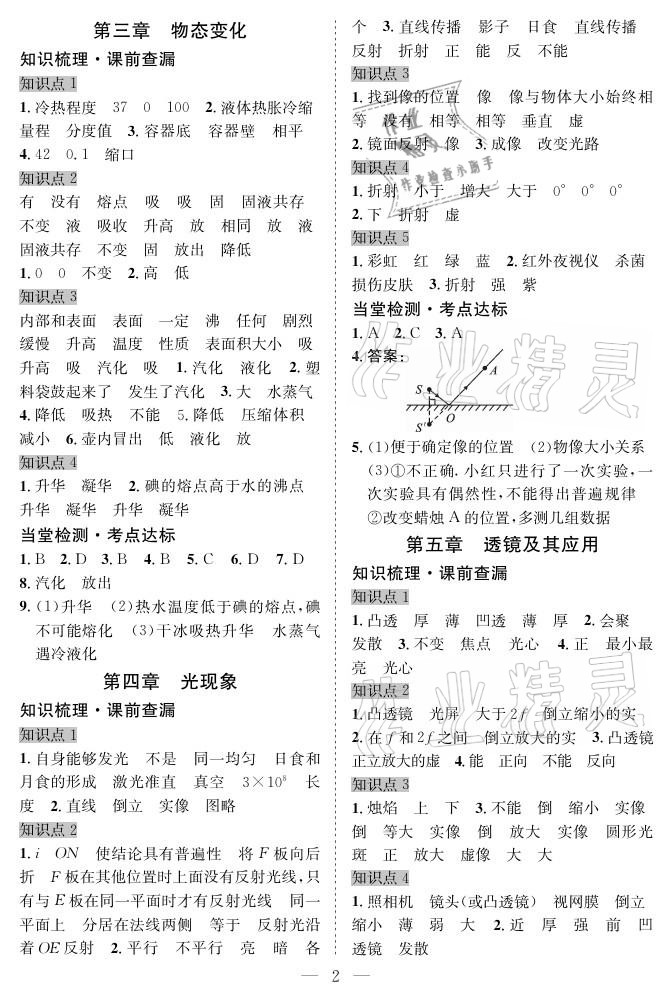 第三章　物态变化
知识梳理·课前查漏
知识点1
1.冷热程度　37　0　100　2.液体热胀冷缩
量程　分度值　3.容器底　容器壁　相平
4.42　0.1　缩口
知识点2
有　没有　熔点　吸　吸　固　固液共存
不变　液　吸收　升高　放　相同　放　液
固液共存　不变　固　放出　降低
1.0　0　不变　2.高　低
知识点3
内部和表面　表面　一定　沸　任何　剧烈
缓慢　升高　温度　性质　表面积大小　吸
升高　吸　汽化　吸　1.汽化　液化　2.塑
料袋鼓起来了　发生了汽化　3.大　水蒸气
4.降低　吸热　不能　5.降低　压缩体积
减小　6.壶内冒出　低　液化　放
知识点4
1.升华　凝华　2.碘的熔点高于水的沸点
升华　凝华　升华　凝华
当堂检测·考点达标
1.B　2.D　3.B　4.B　5.C　6.D　7.D
8.汽化　放出
9.(1)升华　(2)热水温度低于碘的熔点,碘
不可能熔化　(3)干冰吸热升华　水蒸气
遇冷液化
第四章　光现象
知识梳理·课前查漏
知识点1
1.自身能够发光　不是　同一均匀　日食和
月食的形成　激光准直　真空　3×10⁸　长
度　2.直线　倒立　实像　图略
知识点2
1.i　ON　使结论具有普遍性　将F板向后
折　F板在其他位置时上面没有反射光线,只
有与E板在同一平面时才有反射光线　同一
平面上　分居在法线两侧　等于　反射光沿
着OE反射　2.平行　不平行　亮　暗　各
个　3.直线传播　影子　日食　直线传播
反射　折射　正　能　反　不能
知识点3
1.找到像的位置　像　像与物体大小始终相
等　没有　相等　相等　垂直　虚
2.镜面反射　像　3.成像　改变光路
知识点4
1.折射　小于　增大　大于　0°　0°　0°
2.下　折射　虚
知识点5
1.彩虹　红　绿　蓝　2.红外夜视仪　杀菌
损伤皮肤　3.折射　强　紫
当堂检测·考点达标
1.A　2.C　3.A
4.答案:
A
S
O
S′
5.(1)便于确定像的位置　(2)物像大小关系
(3)①不正确.小红只进行了一次实验,一
次实验具有偶然性,不能得出普遍规律
②改变蜡烛A的位置,多测几组数据
第五章　透镜及其应用
知识梳理·课前查漏
知识点1
1.凸透　厚　薄　凹透　薄　厚　2.会聚
发散　3.不变　焦点　光心　4.正　最小最
亮　光心
知识点2
1.凸透镜　光屏　大于2f　倒立缩小的实
2.在f和2f之间　倒立放大的实　3.凸透镜
正立放大的虚　4.能　正向　不能　反向
知识点3
1.烛焰　上　下　3.不能　倒　缩小　实像
倒　等大　实像　倒　放大　实像　圆形光
斑　正　放大　虚像　大　大
知识点4
1.照相机　镜头(或凸透镜)　视网膜　倒立
缩小　薄　弱　大　2.近　厚　强　前　凹
透镜　发散
— 2 —
作业精灵
作业精灵
作业精灵
作业检查小助手